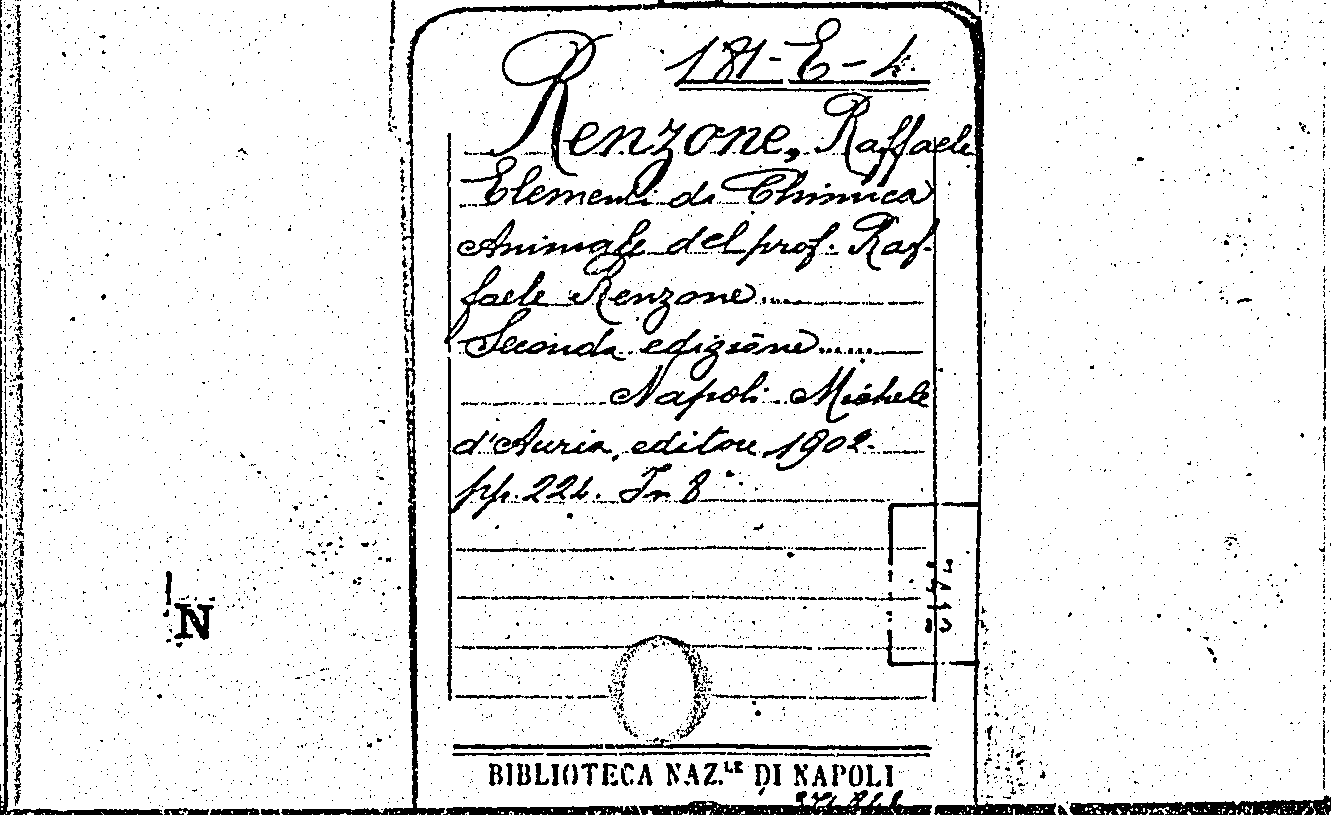 181-E-4.
Renzone, Raffaele
Elementi di Chimica
Animale del prof. Raf-
faele Renzone.....
Seconda edizione......
Napoli Michele
d'Auria, editore 1902.
pp. 224. In 8°.
N
BIBLIOTECA NAZ.LE DI NAPOLI